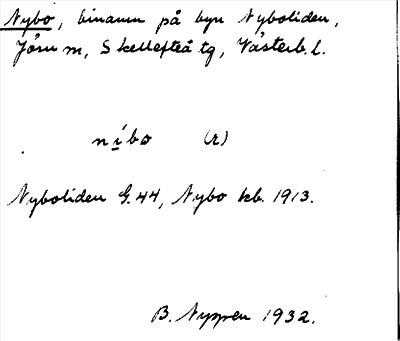 Nybo, binamn på byn Nyboliden,
Jörn m, Skellefteå tg, Västerb. l.
níbo (r)
Nyboliden G. 44, Nybo kb. 1913.
B. Nyppen 1932.